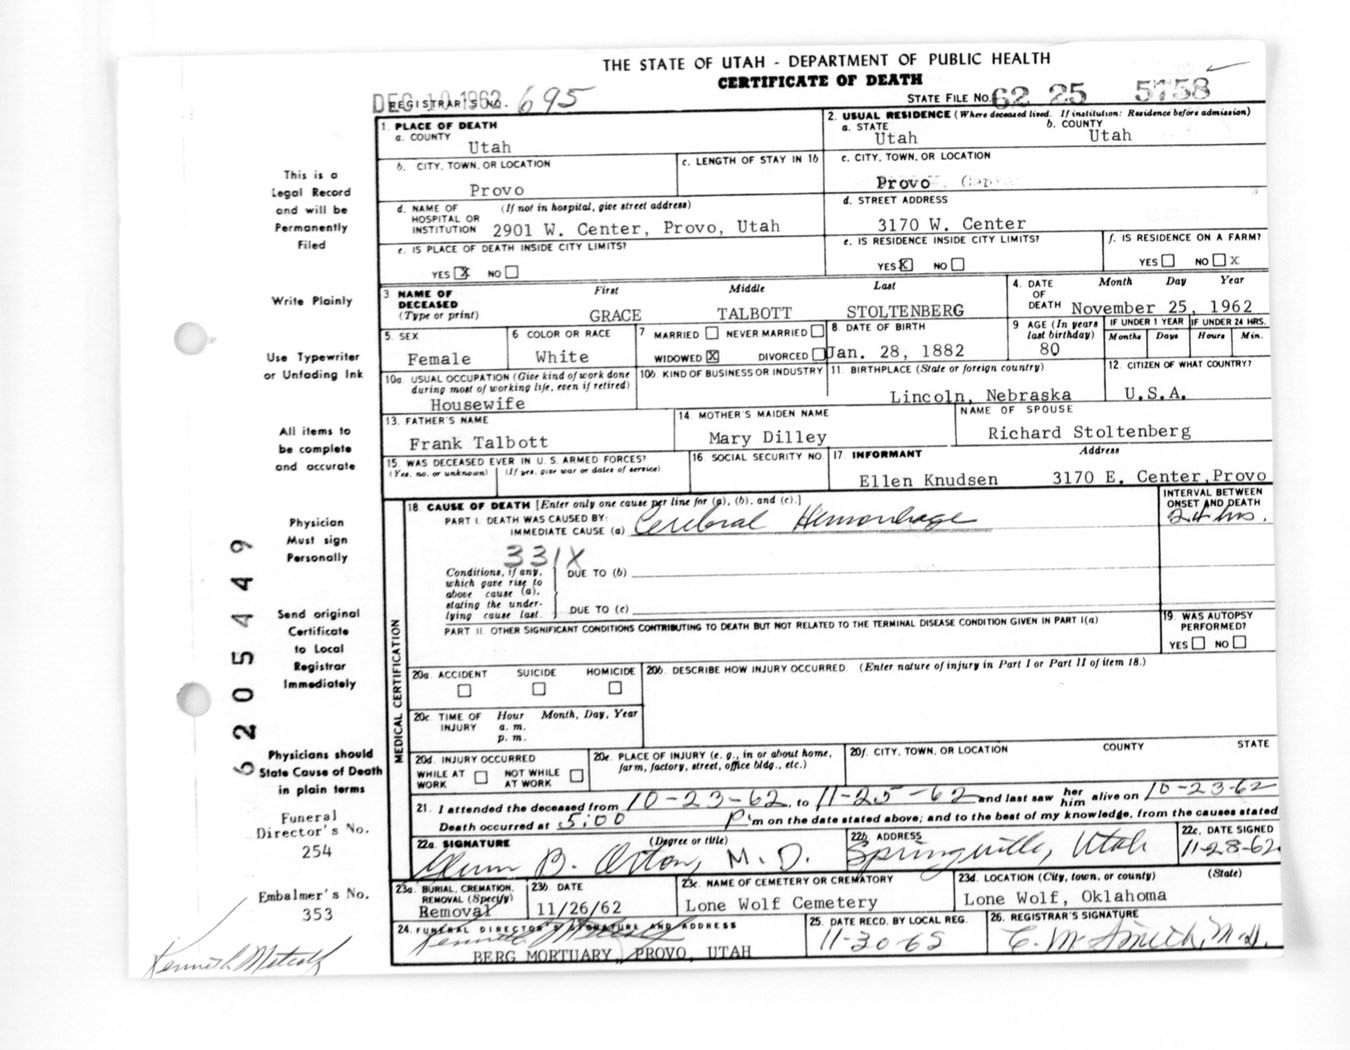 THE STATE OF UTAH - DEPARTMENT OF PUBLIC HEALTH
CERTIFICATE OF DEATH
DEC 10 1962
REGISTRAR'S NO. 695
STATE FILE NO. 62 25 5758
1. PLACE OF DEATH
a. COUNTY
Utah
2. USUAL RESIDENCE (Where deceased lived. If institution: Residence before admission)
a. STATE
Utah
b. COUNTY
Utah
b. CITY, TOWN, OR LOCATION
Provo
c. LENGTH OF STAY IN 1b
c. CITY, TOWN, OR LOCATION
Provo
d. NAME OF HOSPITAL OR INSTITUTION (If not in hospital, give street address)
2901 W. Center, Provo, Utah
d. STREET ADDRESS
3170 W. Center
e. IS PLACE OF DEATH INSIDE CITY LIMITS?
YES X NO
e. IS RESIDENCE INSIDE CITY LIMITS?
YES X NO
f. IS RESIDENCE ON A FARM?
YES NO X
3 NAME OF DECEASED (Type or print)
First Middle Last
GRACE TALBOTT STOLTENBERG
4. DATE OF DEATH
Month Day Year
November 25, 1962
5. SEX
Female
6 COLOR OR RACE
White
7 MARRIED NEVER MARRIED
WIDOWED X DIVORCED
8. DATE OF BIRTH
Jan. 28, 1882
9 AGE (In years last birthday)
80
IF UNDER 1 YEAR IF UNDER 24 HRS.
Months Days Hours Min.
10a. USUAL OCCUPATION (Give kind of work done during most of working life, even if retired)
Housewife
10b. KIND OF BUSINESS OR INDUSTRY
11. BIRTHPLACE (State or foreign country)
Lincoln, Nebraska
12. CITIZEN OF WHAT COUNTRY?
U.S.A.
13. FATHER'S NAME
Frank Talbott
14 MOTHER'S MAIDEN NAME
Mary Dilley
NAME OF SPOUSE
Richard Stoltenberg
15. WAS DECEASED EVER IN U. S. ARMED FORCES?
(Yes, no, or unknown) (If yes, give war or dates of service)
16. SOCIAL SECURITY NO.
17 INFORMANT Address
Ellen Knudsen 3170 E. Center, Provo
18. CAUSE OF DEATH [Enter only one cause per line for (a), (b), and (c).]
PART I. DEATH WAS CAUSED BY:
IMMEDIATE CAUSE (a) Cerebral Hemorrhage
INTERVAL BETWEEN ONSET AND DEATH
24 hrs.
331X
Conditions, if any, which gave rise to above cause (a), stating the underlying cause last.
DUE TO (b)
DUE TO (c)
PART II. OTHER SIGNIFICANT CONDITIONS CONTRIBUTING TO DEATH BUT NOT RELATED TO THE TERMINAL DISEASE CONDITION GIVEN IN PART I(a)
19. WAS AUTOPSY PERFORMED?
YES NO
MEDICAL CERTIFICATION
20a. ACCIDENT SUICIDE HOMICIDE
20b. DESCRIBE HOW INJURY OCCURRED. (Enter nature of injury in Part I or Part II of item 18.)
20c. TIME OF INJURY Hour Month, Day, Year
a. m.
p. m.
20d. INJURY OCCURRED
WHILE AT WORK NOT WHILE AT WORK
20e. PLACE OF INJURY (e. g., in or about home, farm, factory, street, office bldg., etc.)
20f. CITY, TOWN, OR LOCATION COUNTY STATE
21. I attended the deceased from 10-23-62, to 11-25-62 and last saw her him alive on 10-23-62
Death occurred at 5:00 P m on the date stated above; and to the best of my knowledge, from the causes stated
22a. SIGNATURE (Degree or title)
Glenn B. Orton, M.D.
22b. ADDRESS
Springville, Utah
22c. DATE SIGNED
11-28-62
23a. BURIAL, CREMATION, REMOVAL (Specify)
Removal
23b. DATE
11/26/62
23c. NAME OF CEMETERY OR CREMATORY
Lone Wolf Cemetery
23d. LOCATION (City, town, or county) (State)
Lone Wolf, Oklahoma
24. FUNERAL DIRECTOR'S SIGNATURE AND ADDRESS
Kenneth Metcalf
BERG MORTUARY, PROVO, UTAH
25. DATE RECD. BY LOCAL REG.
11-30-62
26. REGISTRAR'S SIGNATURE
C. M. Smith, M.D.
This is a
Legal Record
and will be
Permanently
Filed
Write Plainly
Use Typewriter
or Unfading Ink
All items to
be complete
and accurate
Physician
Must sign
Personally
Send original
Certificate
to Local
Registrar
Immediately
Physicians should
State Cause of Death
in plain terms
Funeral
Director's No.
254
Embalmer's No.
353
Kenneth Metcalf
6205449